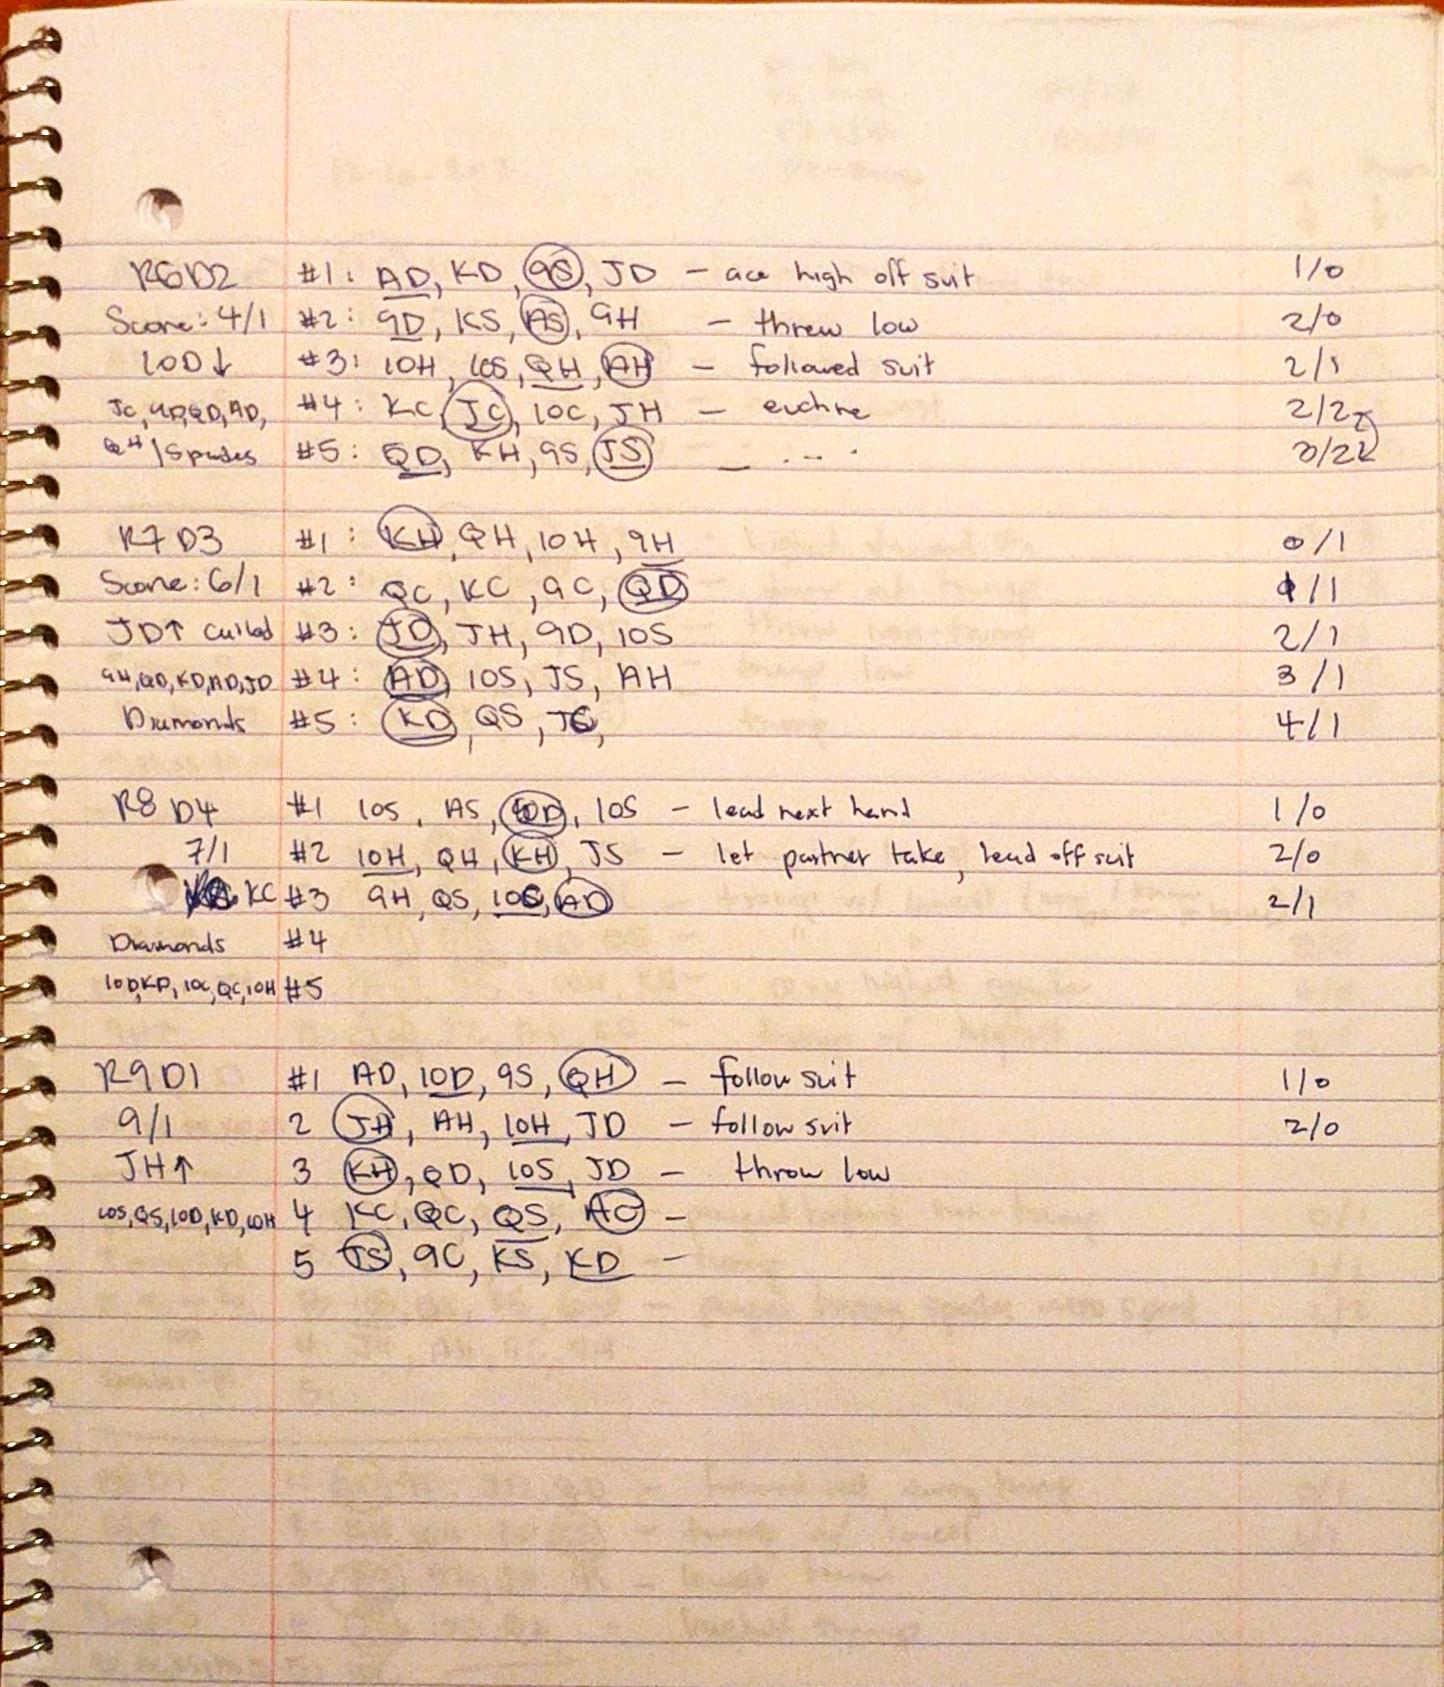 R6D2 #1: AD, KD, 9S, JD - ace high off suit 1/0
Score: 4/1 #2: 9D, KS, AS, 9H - threw low 2/0
10D↓ #3: 10H, 10S, QH, AH - followed suit 2/1
JC, 9D, QD, AD, #4: KC, JC, 10C, JH - euchre 2/2
QH / Spades #5: QD, KH, 9S, JS - .... 3/2
R7 D3 #1: KH, QH, 10H, 9H 0/1
Score: 6/1 #2: QC, KC, 9C, QD 1/1
JD↑ called #3: JD, JH, 9D, 10S 2/1
9H, QD, KD, AD, JD #4: AD, 10S, JS, AH 3/1
Diamonds #5: KD, QS, JC, 4/1
R8 D4 #1 10S, AS, 10D, 10S - lead next hand 1/0
7/1 #2 10H, QH, KH, JS - let partner take, lead off suit 2/0
KC #3 9H, QS, 10C, AD 2/1
Diamonds #4
10D, KD, 10C, QC, 10H #5
R9 D1 #1 AD, 10D, 9S, QH - follow suit 1/0
9/1 2 JH, AH, 10H, JD - follow suit 2/0
JH↑ 3 KH, QD, 10S, JD - throw low
10S, QS, 10D, KD, 10H 4 KC, QC, QS, AC -
5 JS, 9C, KS, KD -